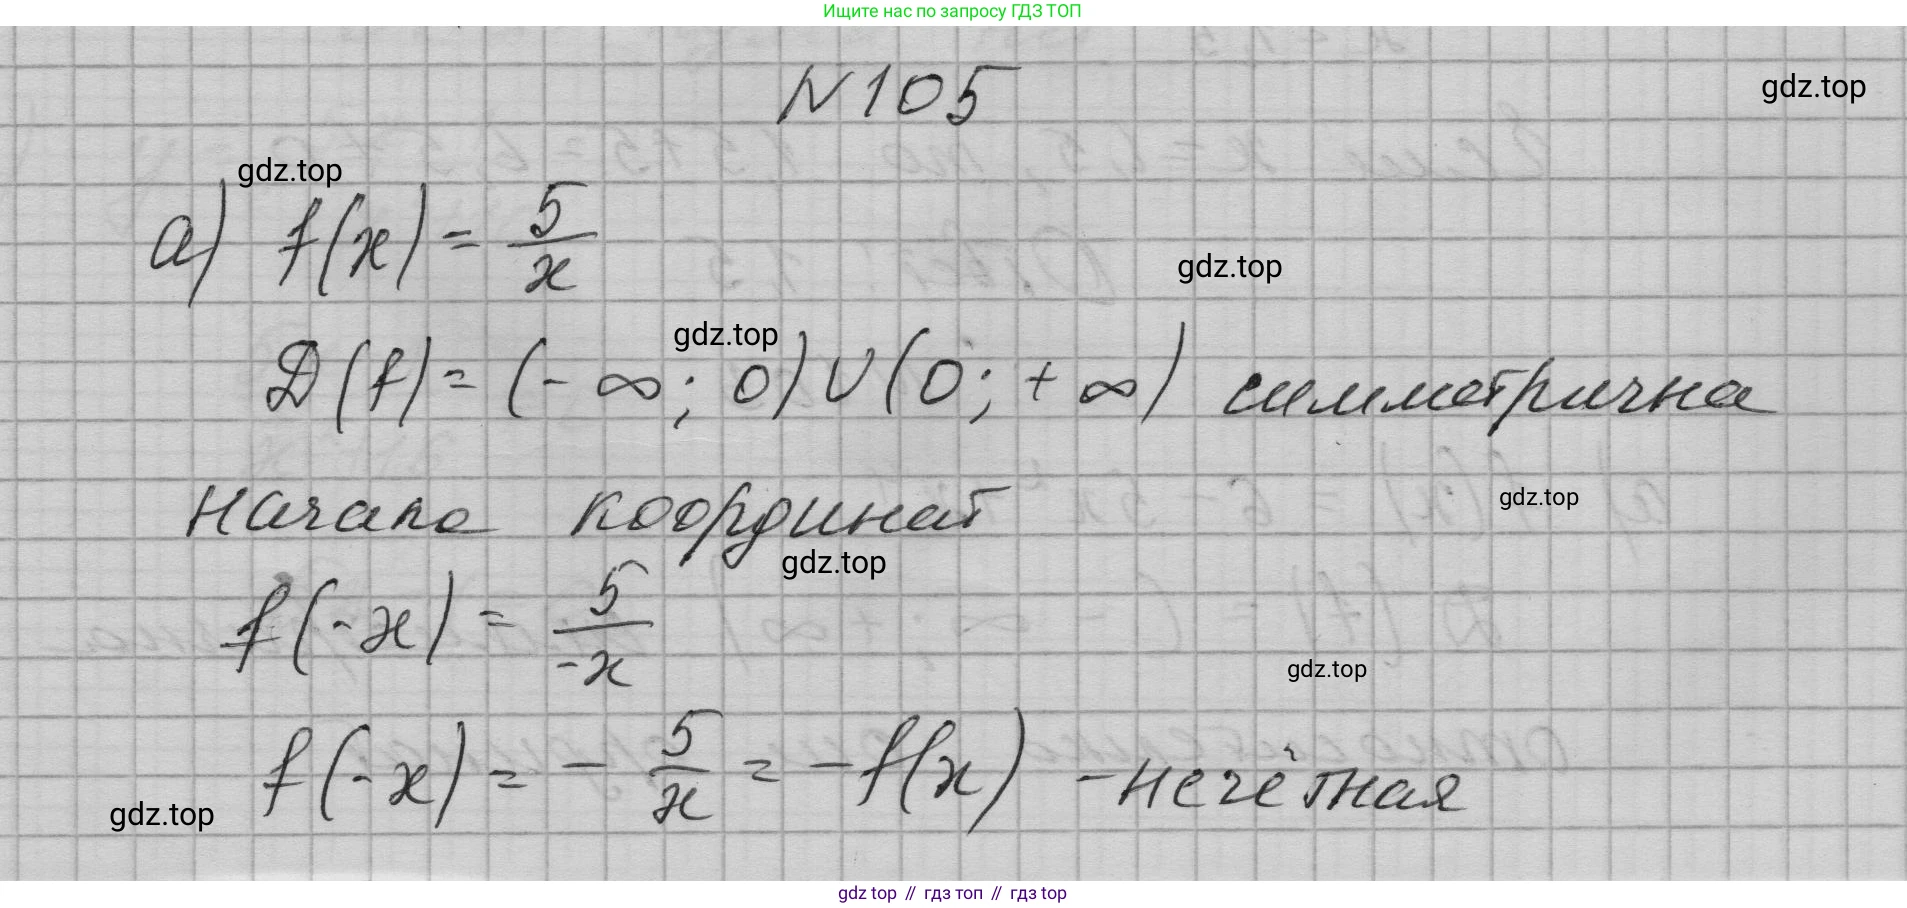 Ищите нас по запросу ГДЗ ТОП
N105
gdz.top
gdz.top
а) f(x) = 5/x
gdz.top
gdz.top
D(f) = (-∞; 0) ∪ (0; +∞) симметрична
начала координат
gdz.top
gdz.top
f(-x) = 5/-x
gdz.top
f(-x) = - 5/x = -f(x) - нечётная
gdz.top
gdz top // гдз топ // гдз top